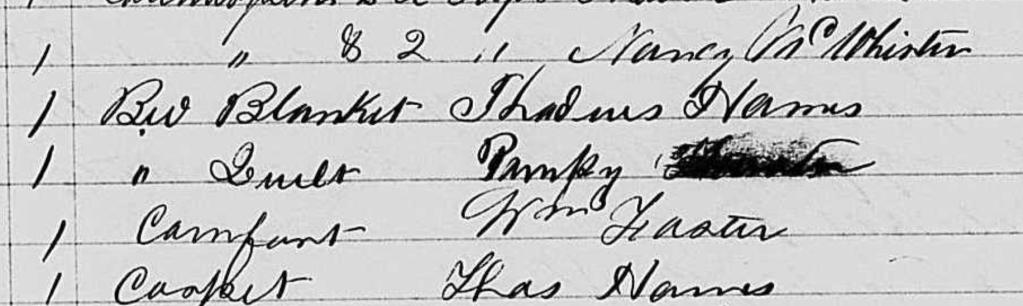 1 " & 2 " Nancy McWhirter
1 Bed Blanket Thadius Hames
1 " Quilt Pumpy
1 Comfort Wm Faster
1 Carpet Thos Hames